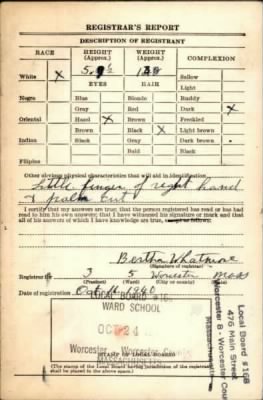 REGISTRAR'S REPORT
DESCRIPTION OF REGISTRANT
RACE
HEIGHT (Approx.)
WEIGHT (Approx.)
COMPLEXION
White X
5.
Sallow
EYES
HAIR
Light
Negro
Blue
Blonde
Ruddy
Gray
Red
Dark X
Oriental
Hazel X
Brown
Freckled
Brown
Black X
Light brown
Indian
Black
Gray
Dark brown
Bald
Black
Filipino
Other obvious physical characteristics that will aid in identification
Little finger of right hand
& palm cut
I certify that my answers are true; that the person registered has read or has had
read to him his own answers; that I have witnessed his signature or mark and that
all of his answers of which I have knowledge are true, except as follows:
Bertha Whatmore
(Signature of registrar)
Registrar for 3 5 Worcester Mass
(Precinct) (Ward) (City or county) (State)
Date of registration Oct 16 1940
LOCAL BOARD #168
WARD SCHOOL
OCT 24
Worcester Worcester
MASSACHUSETTS
STAMP OF LOCAL BOARD
(The stamp of the Local Board having jurisdiction of the registrant
shall be placed in the above space.)
Local Board #168
476 Main Street
Worcester 8 - Worcester Coun
Massachusetts